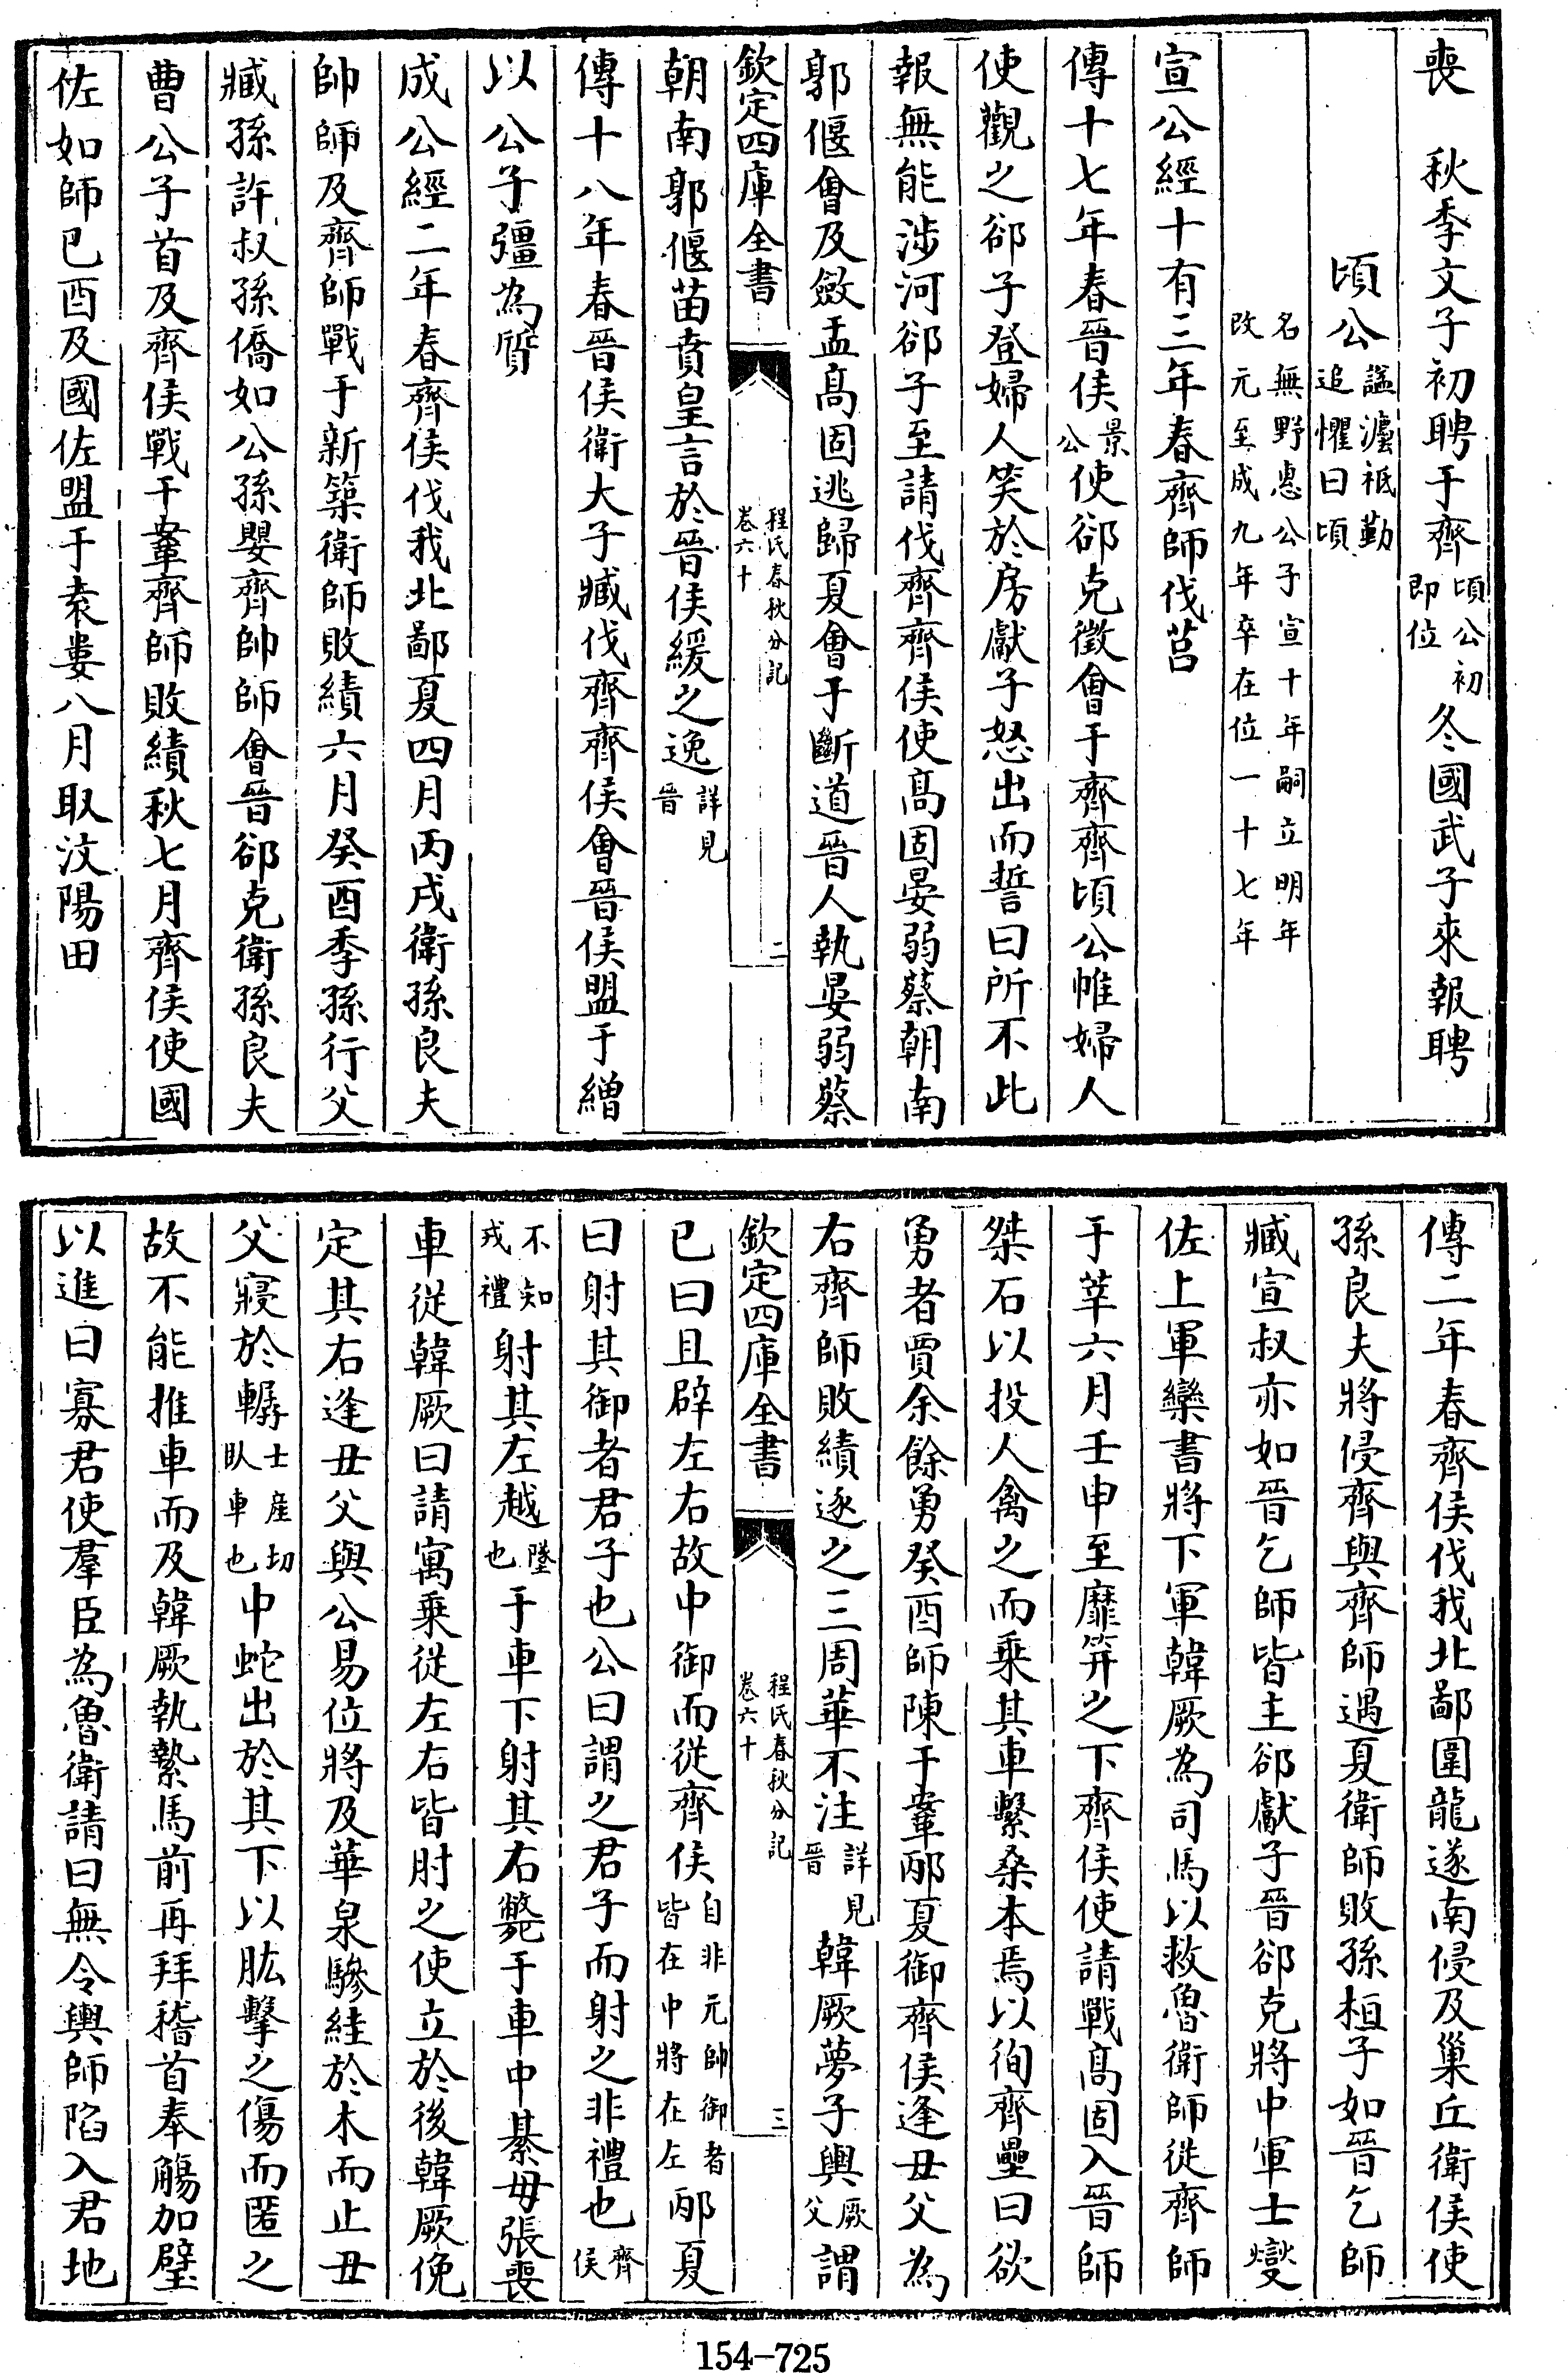 喪　秋季文子初聘于齊頃公初即位冬國武子來報聘
頃公謚灋祗勤追懼曰頃
名無野惠公子宣十年嗣立明年改元至成九年卒在位一十七年
宣公經十有三年春齊師伐莒
傳十七年春晉侯景公使郤克徵會于齊齊頃公帷婦人
使觀之郤子登婦人笑於房獻子怒出而誓曰所不此
報無能涉河郤子至請伐齊齊侯使高固晏弱蔡朝南
郭偃會及斂盂高固逃歸夏會于斷道晉人執晏弱蔡
欽定四庫全書　程氏春秋分記卷六十　二
朝南郭偃苗賁皇言於晉侯緩之逸詳見晉
傳十八年春晉侯衛大子臧伐齊齊侯會晉侯盟于繒
以公子彊為質
成公經二年春齊侯伐我北鄙夏四月丙戌衛孫良夫
帥師及齊師戰于新築衛師敗績六月癸酉季孫行父
臧孫許叔孫僑如公孫嬰齊帥師會晉郤克衛孫良夫
曹公子首及齊侯戰于鞌齊師敗績秋七月齊侯使國
佐如師己酉及國佐盟于袁婁八月取汶陽田
傳二年春齊侯伐我北鄙圍龍遂南侵及巢丘衛侯使
孫良夫將侵齊與齊師遇夏衛師敗孫桓子如晉乞師
臧宣叔亦如晉乞師皆主郤獻子晉郤克將中軍士燮
佐上軍欒書將下軍韓厥為司馬以救魯衛師從齊師
于莘六月壬申至靡笄之下齊侯使請戰高固入晉師
桀石以投人禽之而乘其車繫桑本焉以徇齊壘曰欲
勇者賈余餘勇癸酉師陳于鞌邴夏御齊侯逢丑父為
右齊師敗績逐之三周華不注詳見晉韓厥夢子輿厥父謂
欽定四庫全書　程氏春秋分記卷六十　三
已曰且辟左右故中御而從齊侯自非元帥御者皆在中將在左邴夏
曰射其御者君子也公曰謂之君子而射之非禮也齊侯
不知戎禮射其左越墜也于車下射其右斃于車中綦毋張喪
車從韓厥曰請寓乘從左右皆肘之使立於後韓厥俛
定其右逢丑父與公易位將及華泉驂絓於木而止丑
父寢於轏士產切臥車也中蛇出於其下以肱擊之傷而匿之
故不能推車而及韓厥執縶馬前再拜稽首奉觴加璧
以進曰寡君使羣臣為魯衛請曰無令輿師陷入君地
154-725